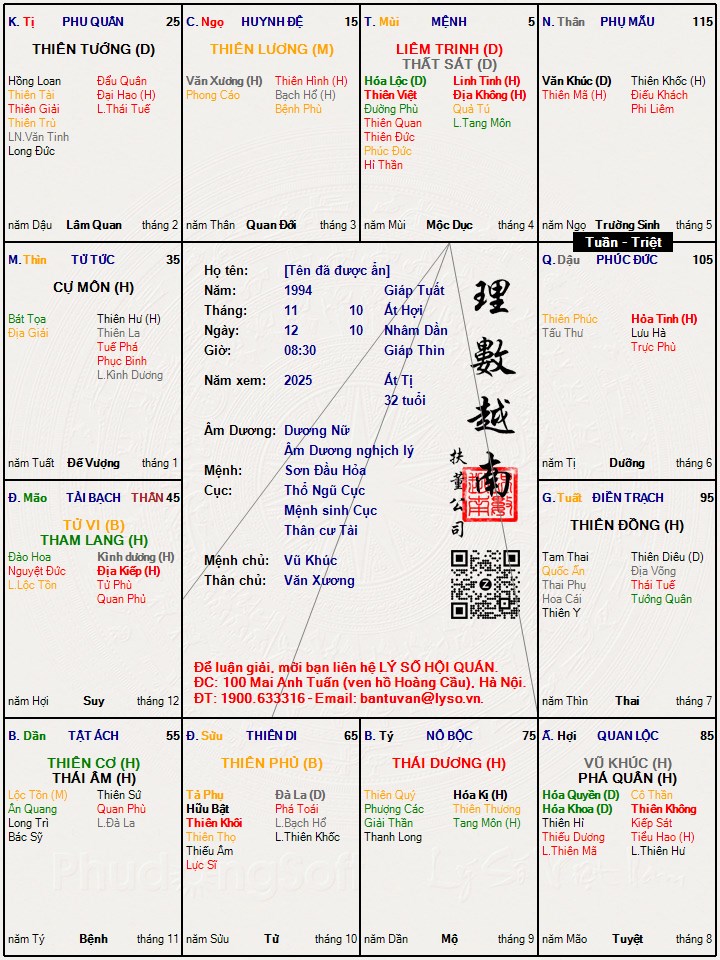 K. Tị PHU QUÂN 25
THIÊN TƯỚNG (D)
Hồng Loan Đẩu Quân
Thiên Tài Đại Hao (H)
Thiên Giải L.Thái Tuế
Thiên Trù
LN.Văn Tinh
Long Đức
năm Dậu Lâm Quan tháng 2
C. Ngọ HUYNH ĐỆ 15
THIÊN LƯƠNG (M)
Văn Xương (H) Thiên Hình (H)
Phong Cáo Bạch Hổ (H)
Bệnh Phù
năm Thân Quan Đới tháng 3
T. Mùi MỆNH 5
LIÊM TRINH (D)
THẤT SÁT (D)
Hóa Lộc (D) Linh Tinh (H)
Thiên Việt Địa Không (H)
Đường Phù Quả Tú
Thiên Quan L.Tang Môn
Thiên Đức
Phúc Đức
Hỉ Thần
năm Mùi Mộc Dục tháng 4
N. Thân PHỤ MẪU 115
Văn Khúc (D) Thiên Khốc (H)
Thiên Mã (H) Điếu Khách
Phi Liêm
năm Ngọ Trường Sinh tháng 5
Tuần - Triệt
M. Thìn TỬ TỨC 35
CỰ MÔN (H)
Bát Tọa Thiên Hư (H)
Địa Giải Thiên La
Tuế Phá
Phục Binh
L.Kình Dương
năm Tuất Đế Vượng tháng 1
Họ tên: [Tên đã được ẩn]
Năm: 1994 Giáp Tuất
Tháng: 11 10 Ất Hợi
Ngày: 12 10 Nhâm Dần
Giờ: 08:30 Giáp Thìn
Năm xem: 2025 Ất Tị
32 tuổi
Âm Dương: Dương Nữ
Âm Dương nghịch lý
Mệnh: Sơn Đầu Hỏa
Cục: Thổ Ngũ Cục
Mệnh sinh Cục
Thân cư Tài
Mệnh chủ: Vũ Khúc
Thân chủ: Văn Xương
理數越南
扶董公司
Để luận giải, mời bạn liên hệ LÝ SỐ HỘI QUÁN.
ĐC: 100 Mai Anh Tuấn (ven hồ Hoàng Cầu), Hà Nội.
ĐT: 1900.633316 - Email: bantuvan@lyso.vn.
Q. Dậu PHÚC ĐỨC 105
Thiên Phúc Hỏa Tinh (H)
Tấu Thư Lưu Hà
Trực Phù
năm Tị Dưỡng tháng 6
Đ. Mão TÀI BẠCH THÂN 45
TỬ VI (B)
THAM LANG (H)
Đào Hoa Kình dương (H)
Nguyệt Đức Địa Kiếp (H)
L.Lộc Tồn Tử Phù
Quan Phủ
năm Hợi Suy tháng 12
G. Tuất ĐIỀN TRẠCH 95
THIÊN ĐỒNG (H)
Tam Thai Thiên Diêu (D)
Quốc Ấn Địa Võng
Thai Phụ Thái Tuế
Hoa Cái Tướng Quân
Thiên Y
năm Thìn Thai tháng 7
B. Dần TẬT ÁCH 55
THIÊN CƠ (H)
THÁI ÂM (H)
Lộc Tồn (M) Thiên Sứ
Ân Quang Quan Phù
Long Trì L.Đà La
Bác Sỹ
năm Tý Bệnh tháng 11
Đ. Sửu THIÊN DI 65
THIÊN PHỦ (B)
Tả Phụ Đà La (D)
Hữu Bật Phá Toái
Thiên Khôi L.Bạch Hổ
Thiên Thọ L.Thiên Khốc
Thiếu Âm
Lực Sĩ
năm Sửu Tử tháng 10
B. Tý NÔ BỘC 75
THÁI DƯƠNG (H)
Thiên Quý Hóa Kị (H)
Phượng Các Thiên Thương
Giải Thần Tang Môn (H)
Thanh Long
năm Dần Mộ tháng 9
Ấ. Hợi QUAN LỘC 85
VŨ KHÚC (H)
PHÁ QUÂN (H)
Hóa Quyền (D) Cô Thần
Hóa Khoa (D) Thiên Không
Thiên Hỉ Kiếp Sát
Thiếu Dương Tiểu Hao (H)
L.Thiên Mã L.Thiên Hư
năm Mão Tuyệt tháng 8